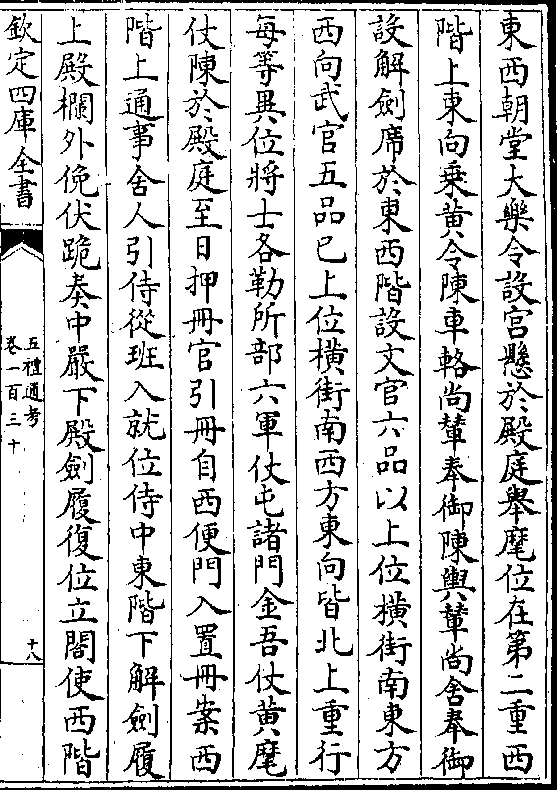 東西朝堂大樂令設宫懸於殿庭舉麾位在第二重西
階上東向乗黄令陳車輅尚輦奉御陳輿輦尚舍奉御
設解劍席於東西階設文官六品以上位横街南東方
西向武官五品已上位横街南西方東向皆北上重行
每等異位將士各勒所部六軍仗屯諸門金吾仗黄麾
仗陳於殿庭至日押冊官引冊自西便門入置冊案西
階上通事舍人引侍從班入就位侍中東階下解劍履
上殿欄外俛伏跪奏中嚴下殿劍履復位立閤使西階
欽定四庫全書
五禮通考
卷一百三十
十八